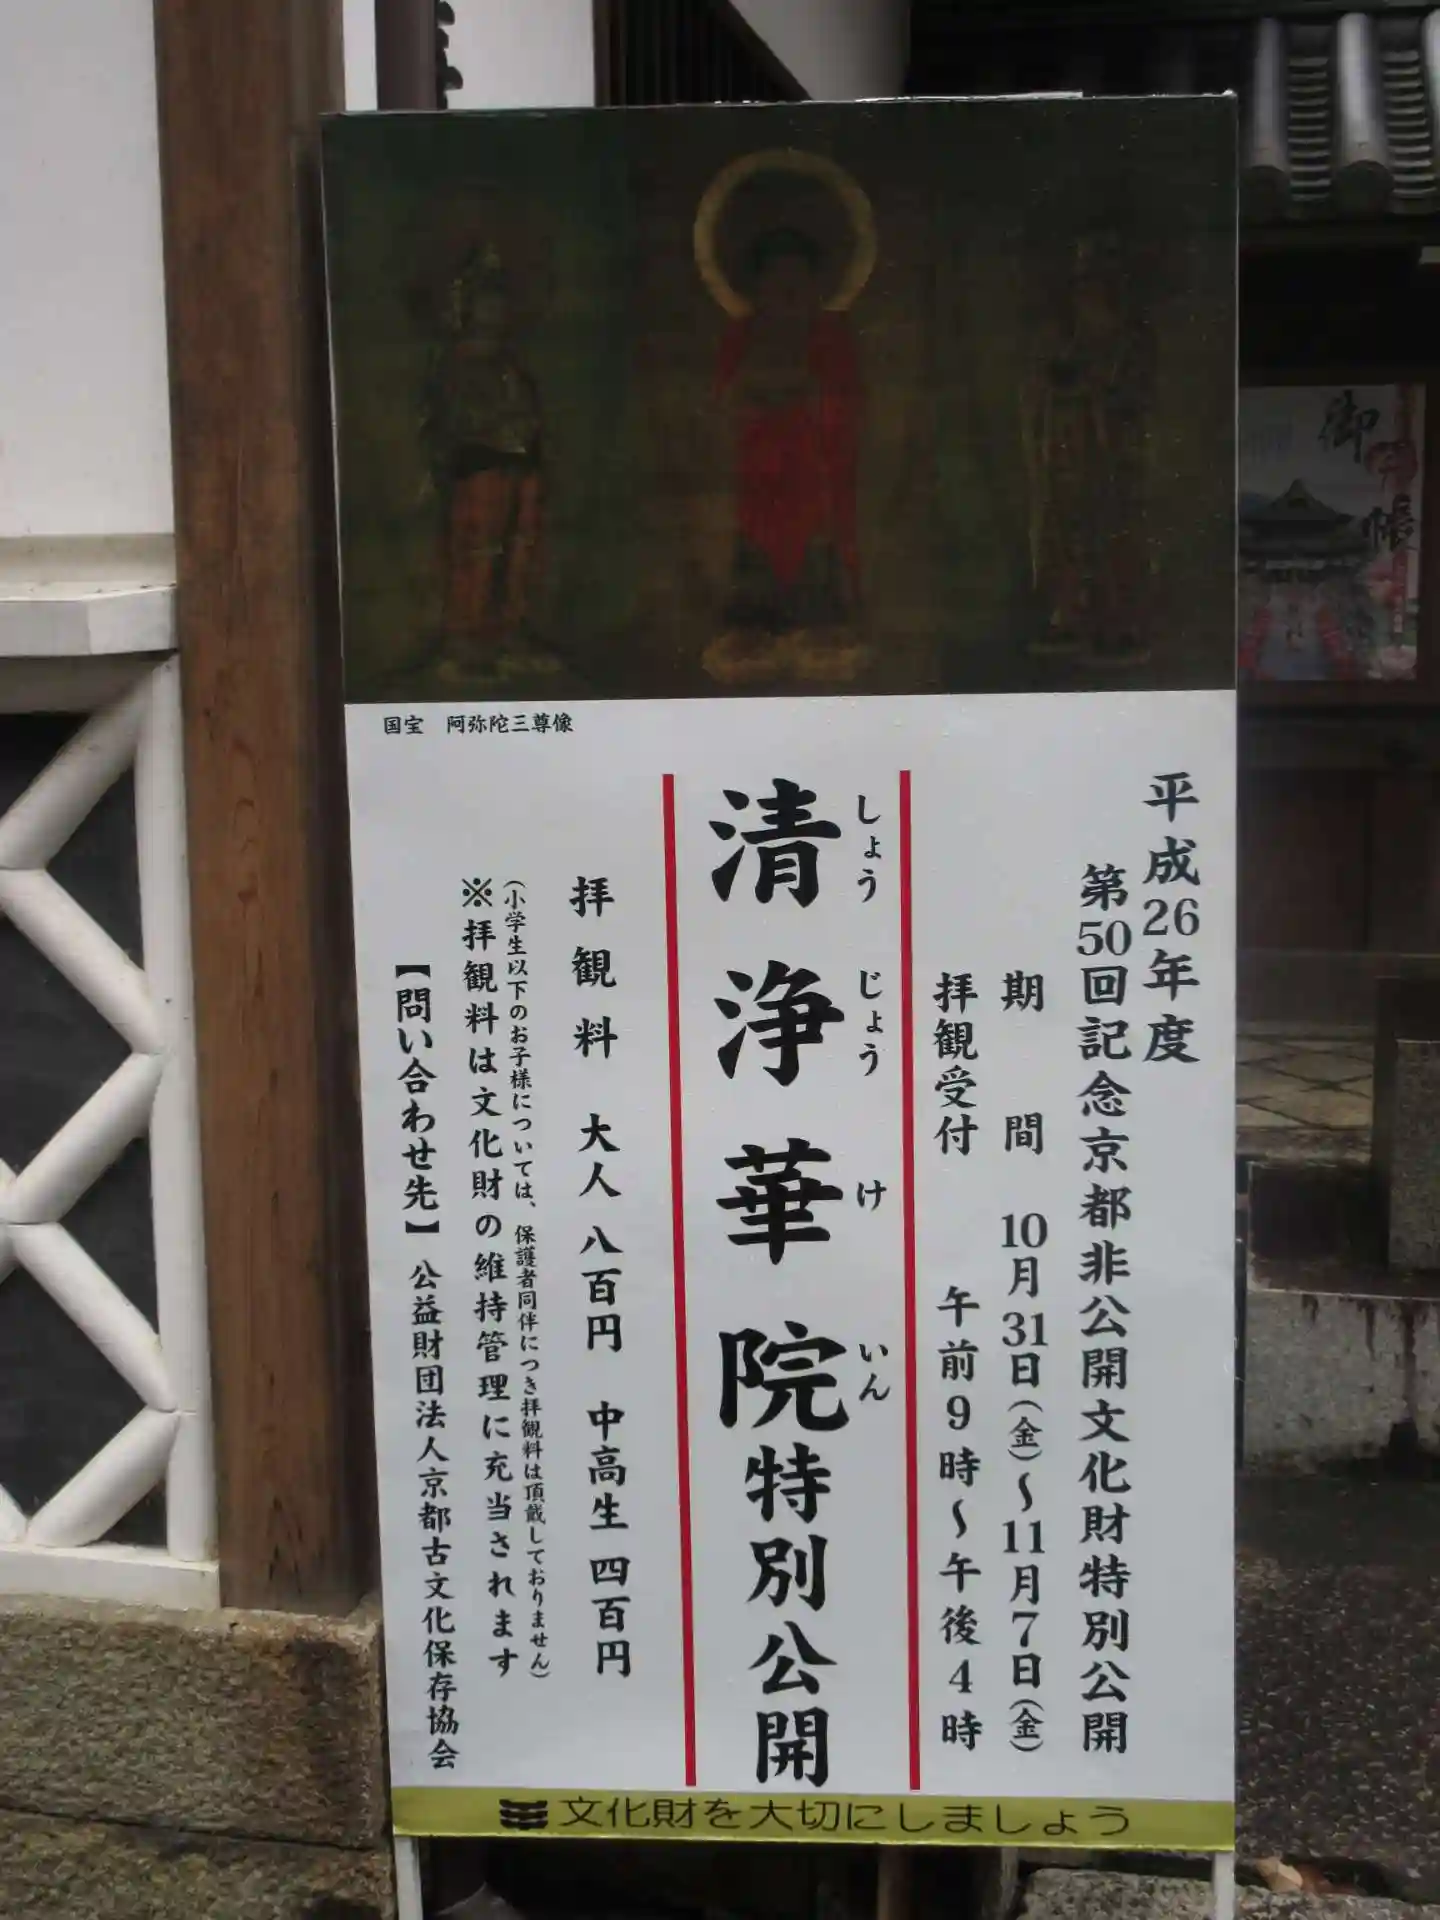 国宝　阿弥陀三尊像
平成26年度
第50回記念京都非公開文化財特別公開
期　間　10月31日(金)～11月7日(金)
拝観受付　午前9時～午後4時
しょう じょう け いん
清浄華院特別公開
拝観料　大人 八百円　中高生 四百円
(小学生以下のお子様については、保護者同伴につき拝観料は頂戴しておりません)
※拝観料は文化財の維持管理に充当されます
【問い合わせ先】公益財団法人京都古文化保存協会
文化財を大切にしましょう
御戸帳